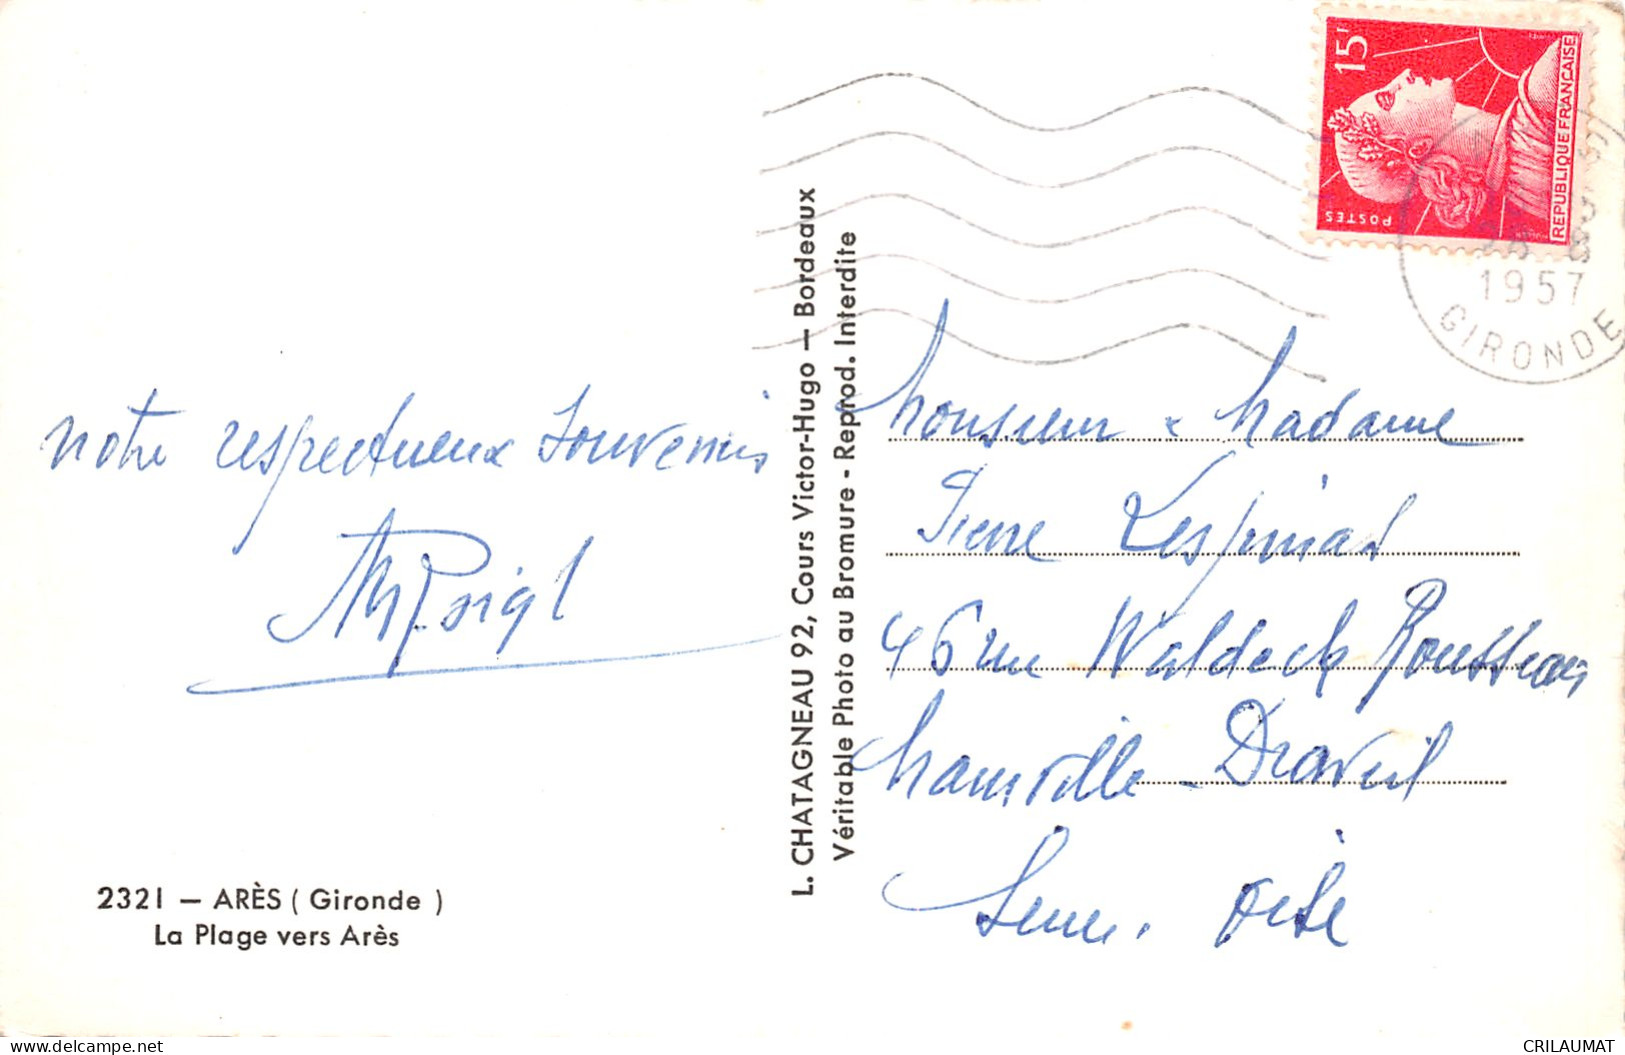 15F
POSTES
REPUBLIQUE FRANÇAISE
MULLER
1957
GIRONDE
notre respectueux souvenir
2321 — ARÈS ( Gironde )
La Plage vers Arès
L. CHATAGNEAU 92, Cours Victor-Hugo — Bordeaux
Véritable Photo au Bromure - Reprod. Interdite
Monsieur & Madame
Pierre Lespinas
46 rue Waldeck Rousseau
Mainville - Draveil
Seine. Oise
delcampe.net
CRILAUMAT